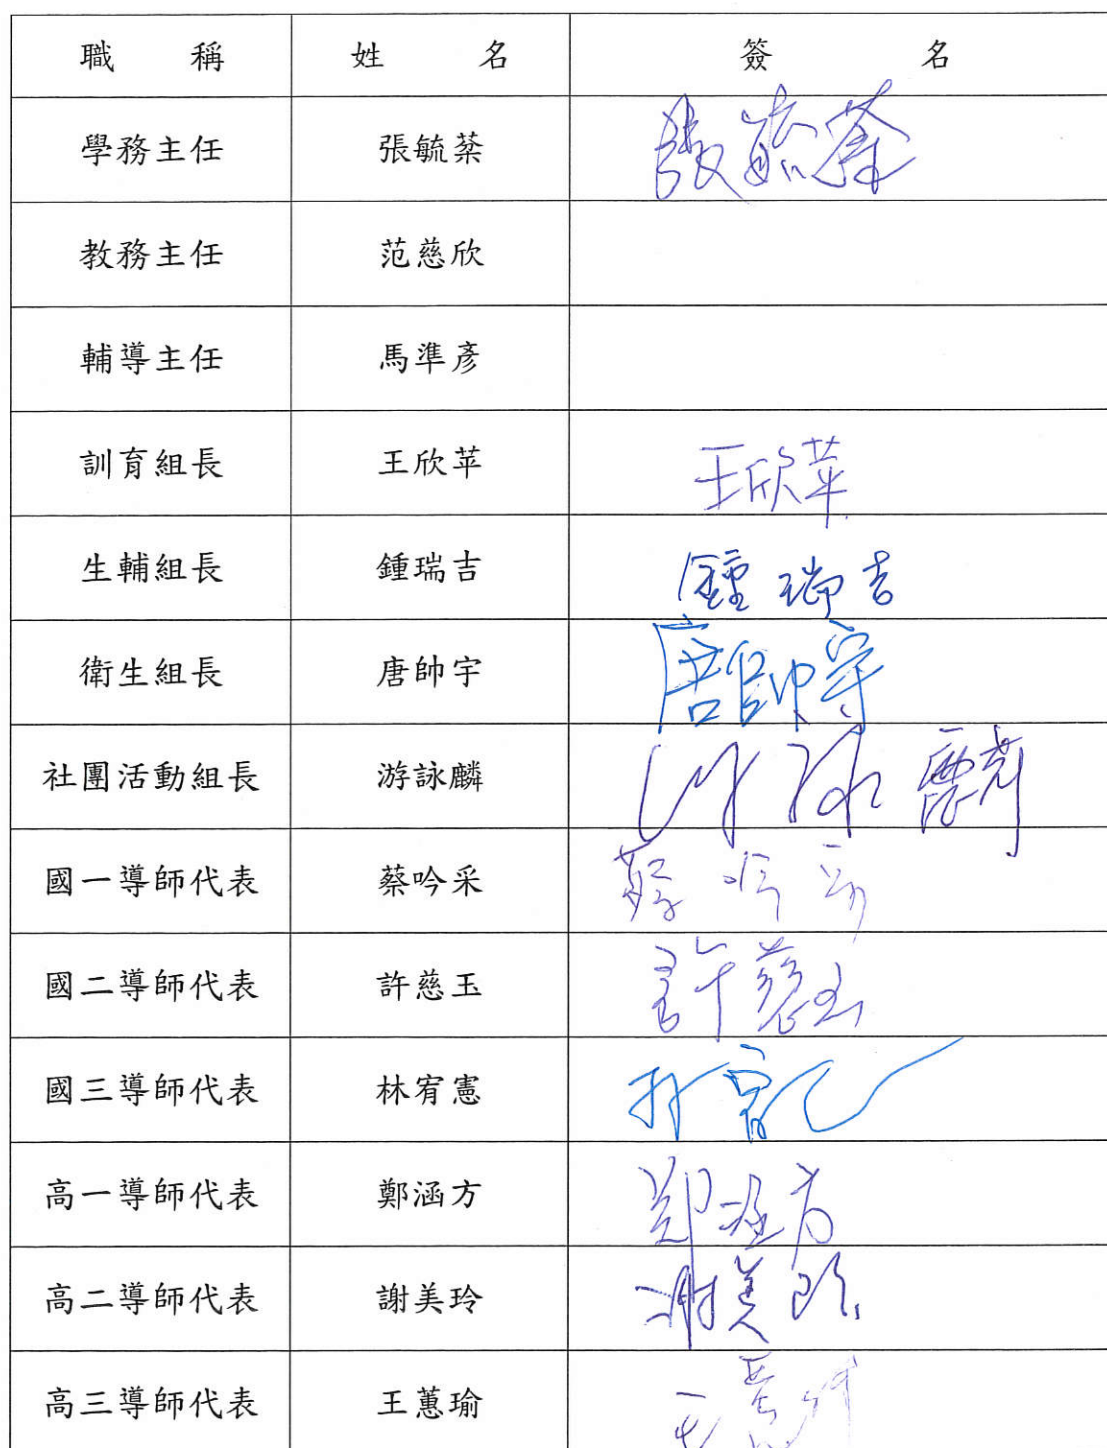 職稱 姓名 簽名
學務主任 張毓棻 張毓棻
教務主任 范慈欣
輔導主任 馬準彥
訓育組長 王欣苹 王欣苹
生輔組長 鍾瑞吉 鍾瑞吉
衛生組長 唐帥宇 唐帥宇
社團活動組長 游詠麟 游詠麟
國一導師代表 蔡吟采 蔡吟
國二導師代表 許慈玉 許慈玉
國三導師代表 林宥憲 林宥
高一導師代表 鄭涵方 鄭涵方
高二導師代表 謝美玲 謝美玲
高三導師代表 王蕙瑜 王蕙瑜